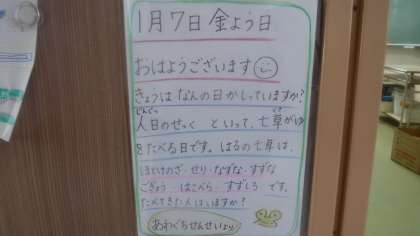 1月7日 金よう日
おはようございます
きょうは なんの日かしっていますか?
じんじつ
人日のせっく といって、七草がゆ
をたべる日です。はるの七草は、
ほとけのざ・せり・なずな・すずな
ごぎょう はこべら・すずしろ です。
たべてきた人はいますか?
あわぐちせんせいより